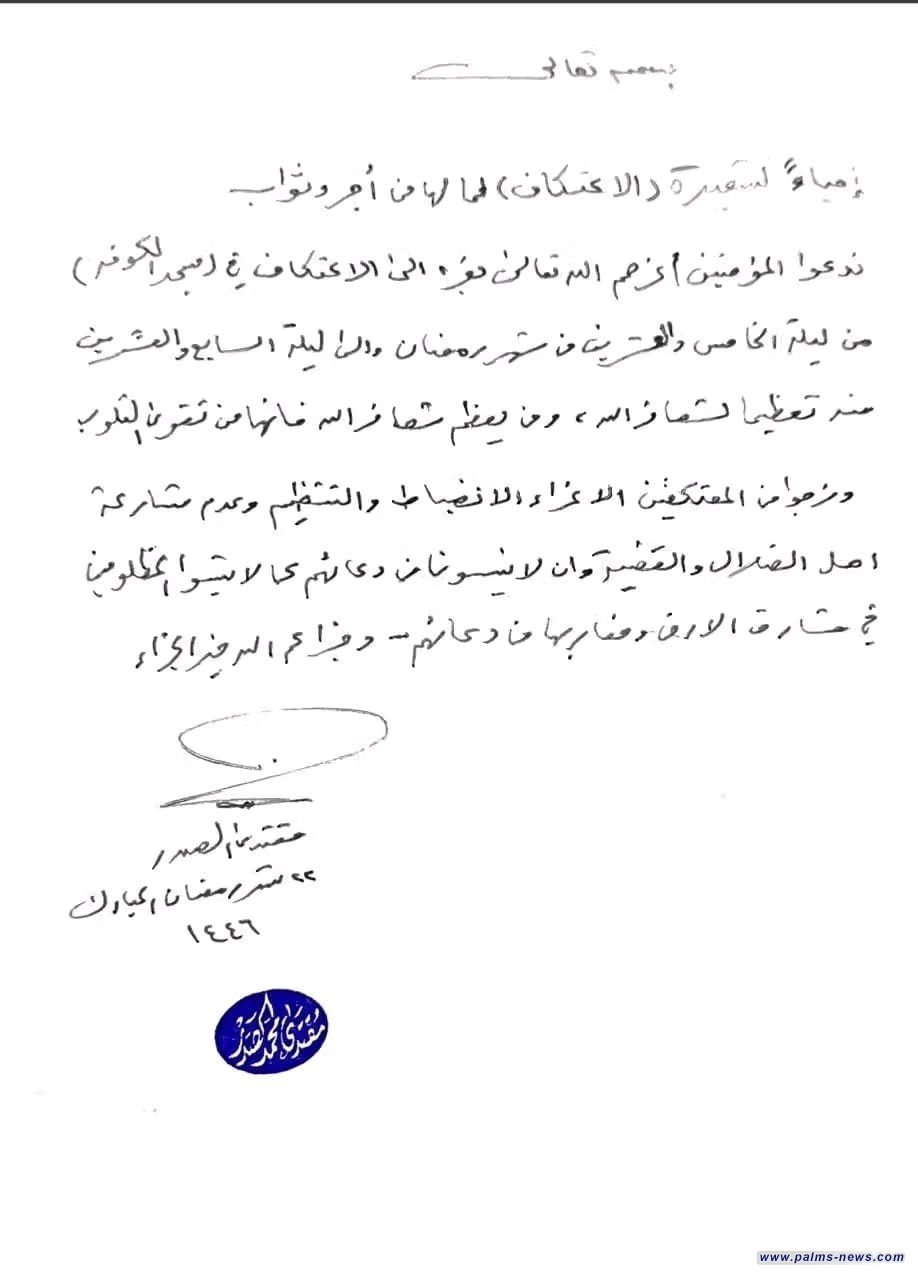 بسمه تعالى
إحياءً لشعيرة (الاعتكاف) لما لها من أجر وثواب
ندعوا المؤمنين أعزهم الله تعالى بعزه الى الاعتكاف في (مسجد الكوفة)
من ليلة الخامس والعشرين من شهر رمضان والى ليلة السابع والعشرين
منه تعظيما لشعائر الله ، ومن يعظم شعائر الله فانها من تقوى القلوب
ونرجوا من المعتكفين الاعزاء الانضباط والتنظيم وعدم مشاركة
اهل الضلال والقضية وان لا ينسونا من دعائهم كما لا ينسوا المظلومين
في مشارق الارض ومغاربها من دعائهم - وجزاكم الله خير الجزاء
مقتدى الصدر
٢٢ شهر رمضان المبارك
١٤٤٦
مقتدى محمد الصدر
www.palms-news.com